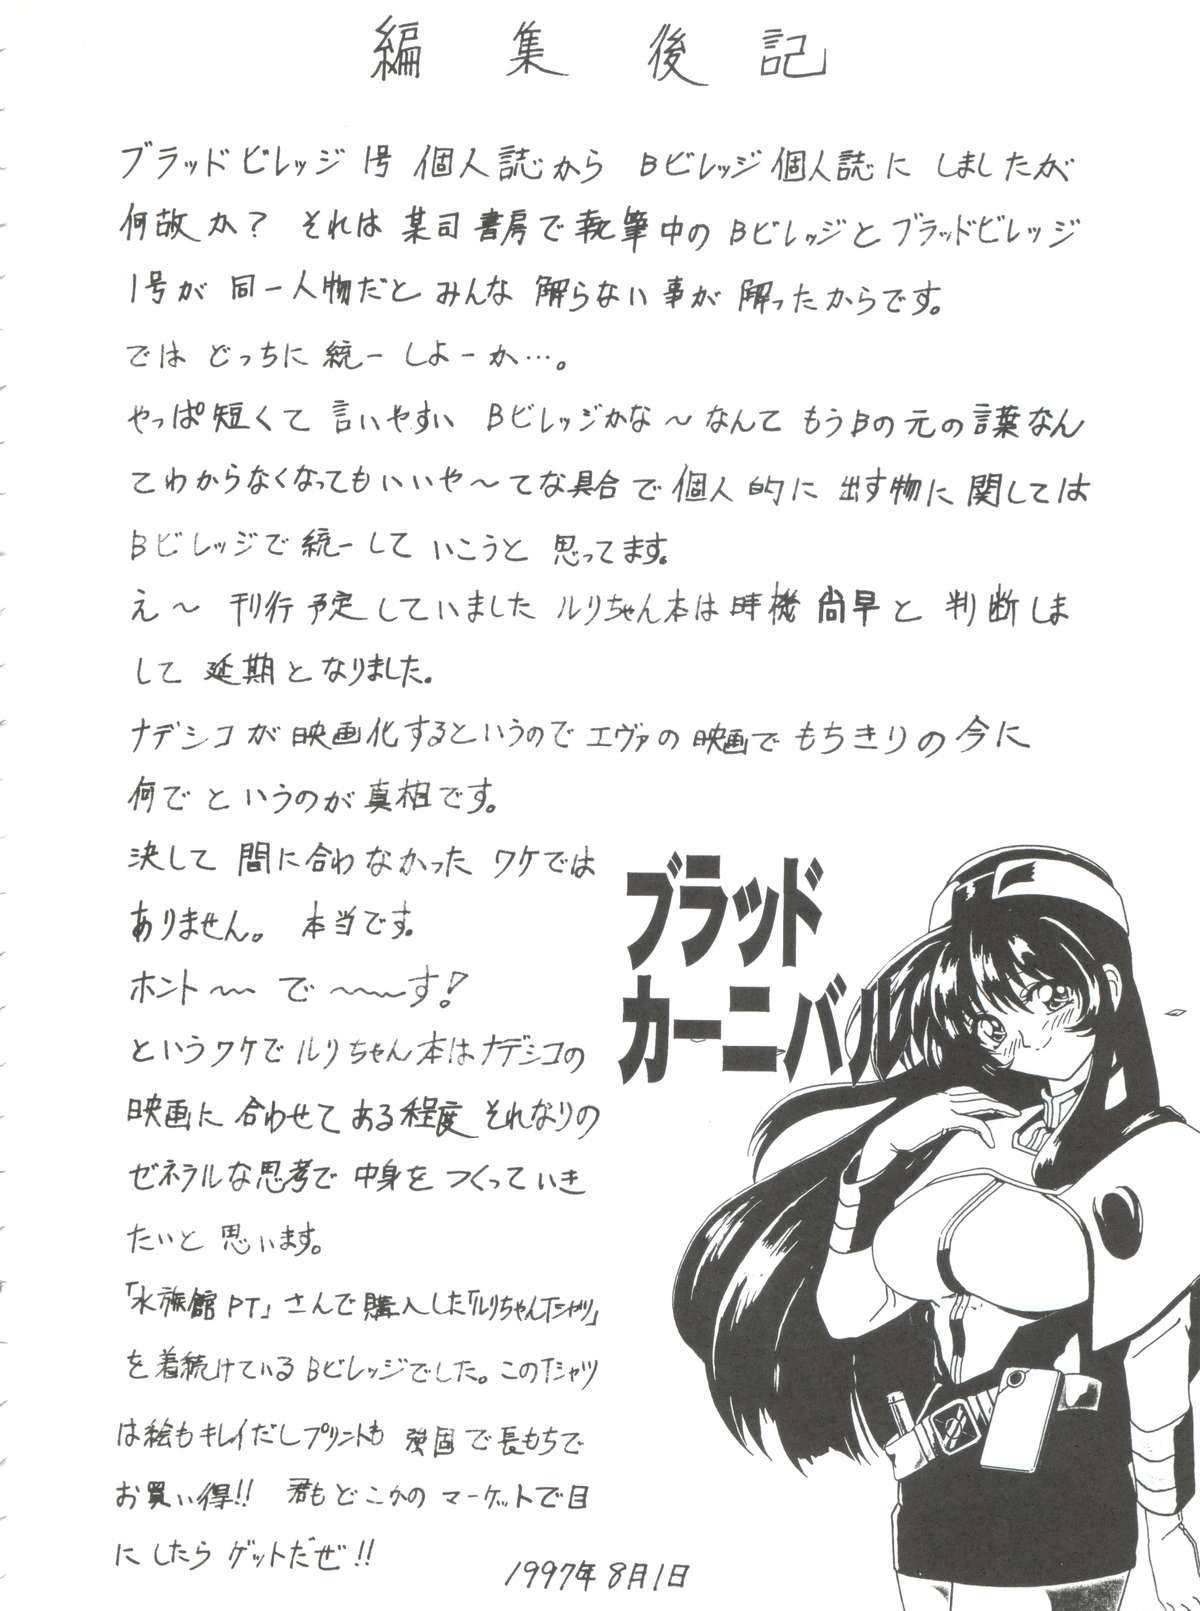 編集後記
ブラッドビレッジ1号 個人誌から Bビレッジ個人誌に しましたが
何故か？ それは 某司書房で執筆中の Bビレッジとブラッドビレッジ
1号が 同一人物だと みんな 解らない事が 解ったからです。
では どっちに 統一 しよーか…。
やっぱ短くて 言いやすい Bビレッジかな〜なんて もうBの元の言葉なん
てわからなくなってもいいや〜てな具合で個人的に 出す物に関しては
Bビレッジで統一して いこうと 思ってます。
え〜 刊行予定していました ルリちゃん本は時機尚早と 判断しま
して 延期となりました。
ナデシコが映画化するというのでエヴァの映画でもちきりの今に
何で というのが真相です。
決して 間に合わなかった ワケでは
ありません。 本当です。
ホント〜〜 で〜〜〜す！
というワケで ルリちゃん本はナデシコの
映画に 合わせて ある程度 それなりの
ゼネラルな思考で 中身を つくっていき
たいと 思います。
「水族館PT」さんで購入した「ルリちゃんTシャツ」
を着続けているBビレッジでした。このTシャツ
は絵もキレイだしプリントも 強固で長もちで
お買い得!! 君もどこかの マーケットで目
にしたら ゲットだぜ!!
1997年8月1日
ブラッド
カーニバル